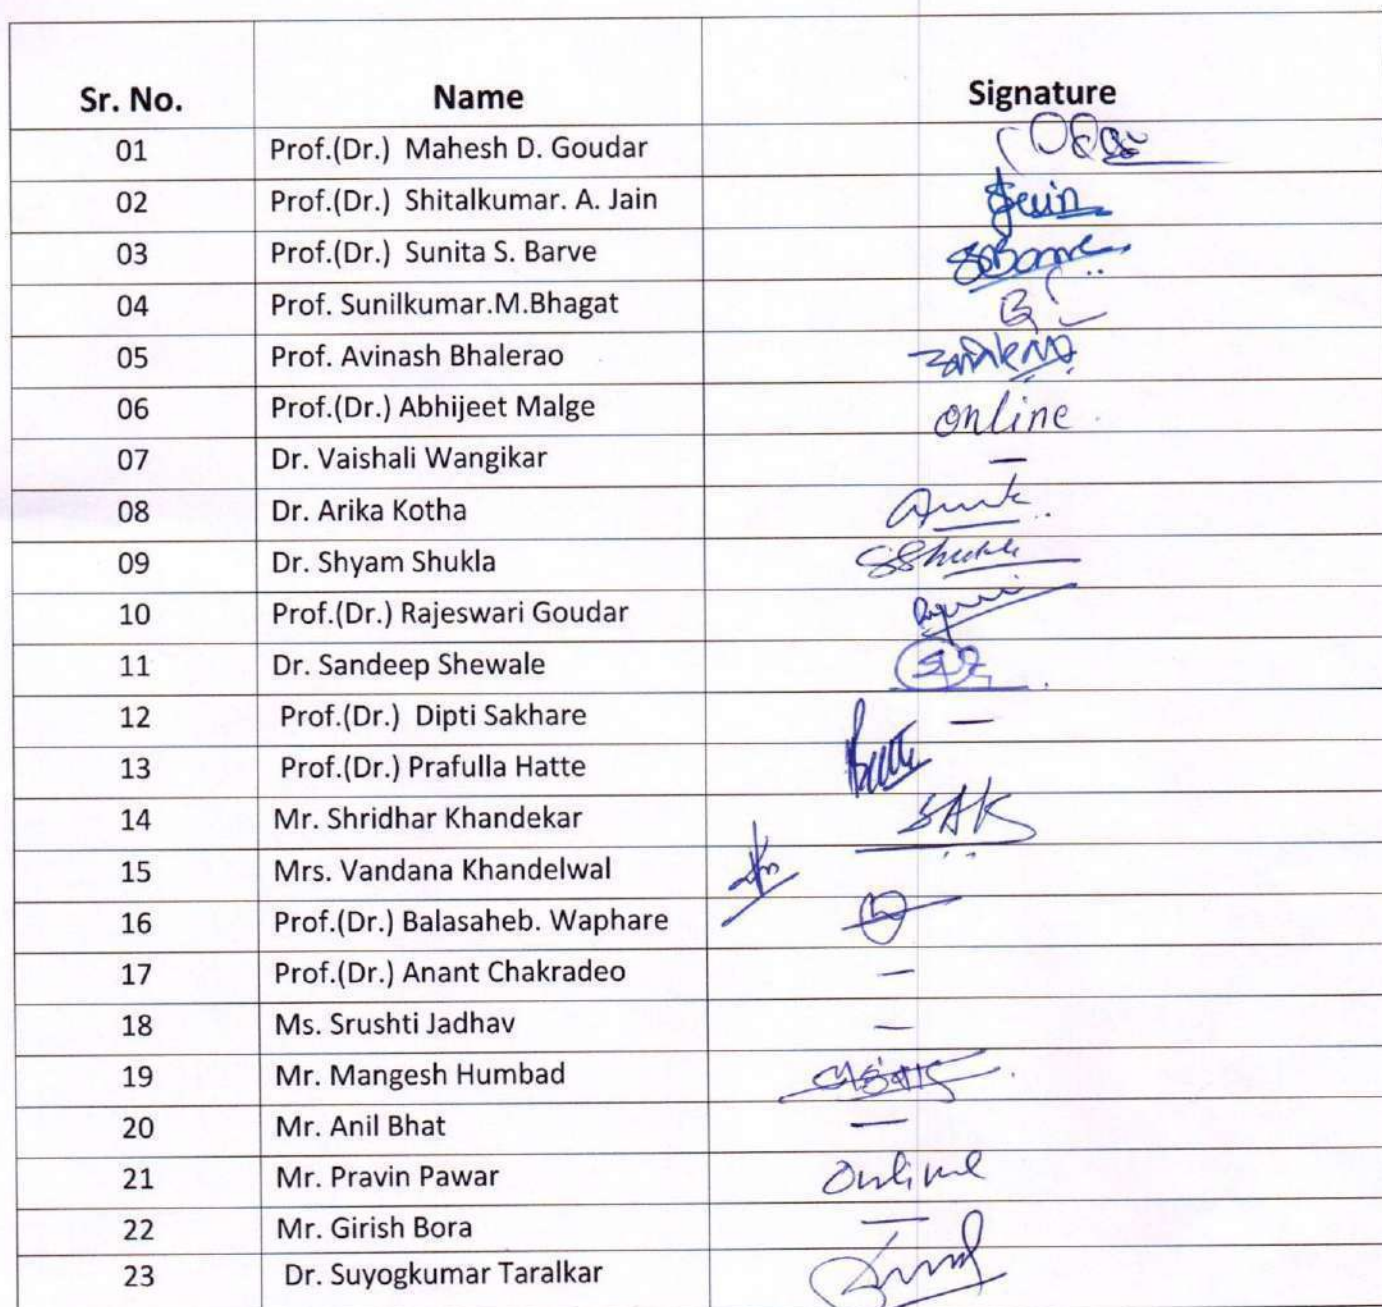 Sr. No. Name Signature
01 Prof.(Dr.) Mahesh D. Goudar
02 Prof.(Dr.) Shitalkumar. A. Jain
03 Prof.(Dr.) Sunita S. Barve
04 Prof. Sunilkumar.M.Bhagat
05 Prof. Avinash Bhalerao
06 Prof.(Dr.) Abhijeet Malge online
07 Dr. Vaishali Wangikar —
08 Dr. Arika Kotha
09 Dr. Shyam Shukla SShukla
10 Prof.(Dr.) Rajeswari Goudar
11 Dr. Sandeep Shewale
12 Prof.(Dr.) Dipti Sakhare —
13 Prof.(Dr.) Prafulla Hatte
14 Mr. Shridhar Khandekar SAK
15 Mrs. Vandana Khandelwal
16 Prof.(Dr.) Balasaheb. Waphare
17 Prof.(Dr.) Anant Chakradeo —
18 Ms. Srushti Jadhav —
19 Mr. Mangesh Humbad
20 Mr. Anil Bhat —
21 Mr. Pravin Pawar Online
22 Mr. Girish Bora —
23 Dr. Suyogkumar Taralkar